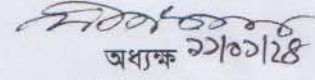 অধ্যক্ষ ১১/০১/২৪